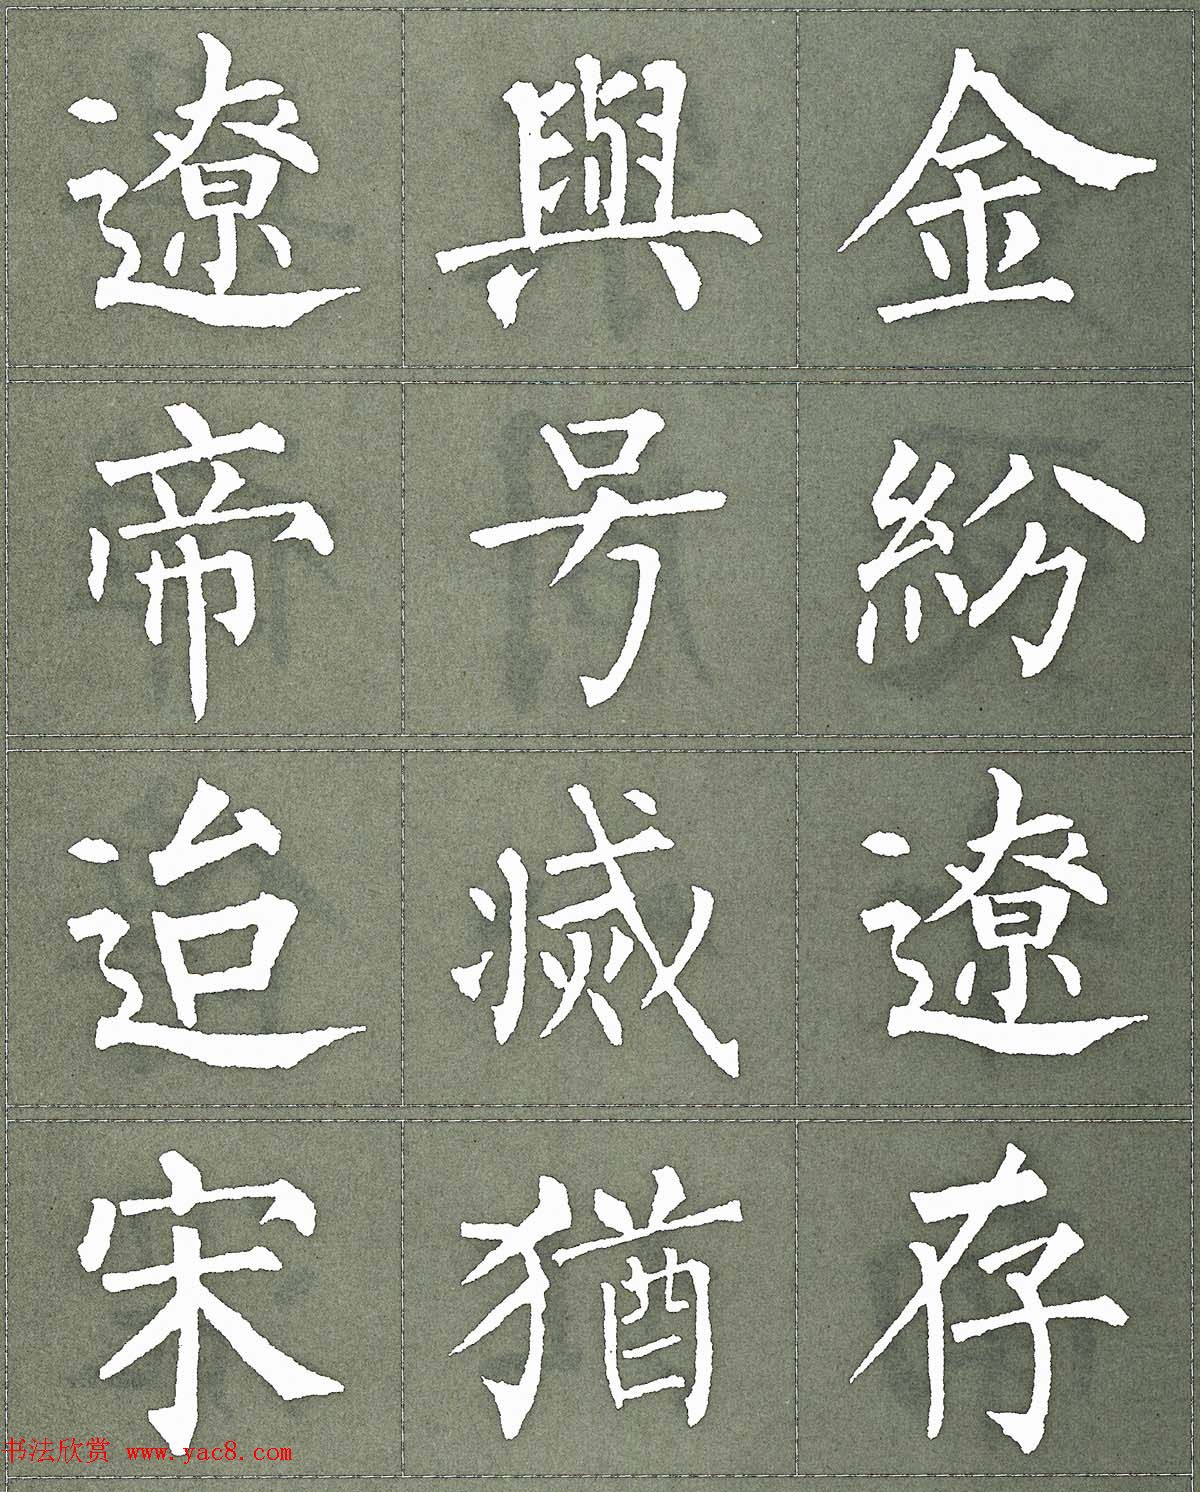 遼與金
帝号紛
迨滅遼
宋猶存
书法欣赏 www.yac8.com